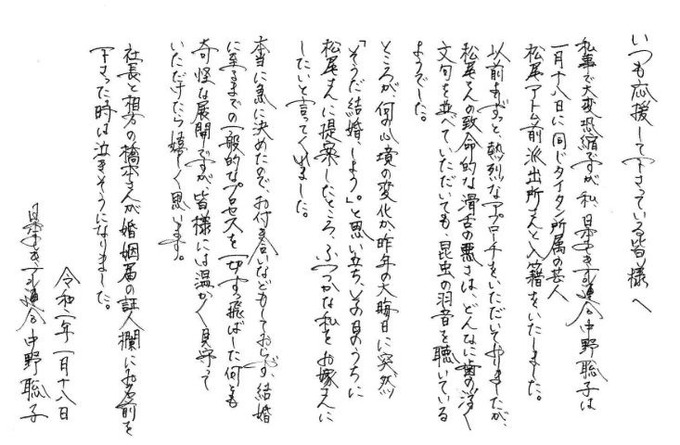 いつも応援して下さっている皆様へ
私事で大変恐縮ですが、私、日本エレキテル連合中野聡子は
一月十八日に同じタイタン所属の芸人
松尾アトム前派出所さんと入籍をいたしました。
以前よりずっと、熱烈なアプローチをいただいておりましたが、
松尾さんの致命的な滑舌の悪さは、どんなに歯の浮く
文句を並べていただいても、昆虫の羽音を聴いている
ようでした。
ところが何の心境の変化か、昨年の大晦日に突然
「そうだ結婚しよう。」と思い立ち、その日のうちに
松尾さんに提案したところ、ふつつかな私をお嫁さんに
したいと言ってくれました。
本当に急に決めたので、お付き合いなどもしておらず、結婚
に至るまでの一般的なプロセスを一切すっ飛ばした何とも
奇怪な展開ですが、皆様には温かく見守って
いただけたら嬉しく思います。
社長と相方の橋本さんが婚姻届の証人欄にお名前を
下さった時は泣きそうになりました。
令和二年一月十八日
日本エレキテル連合 中野聡子